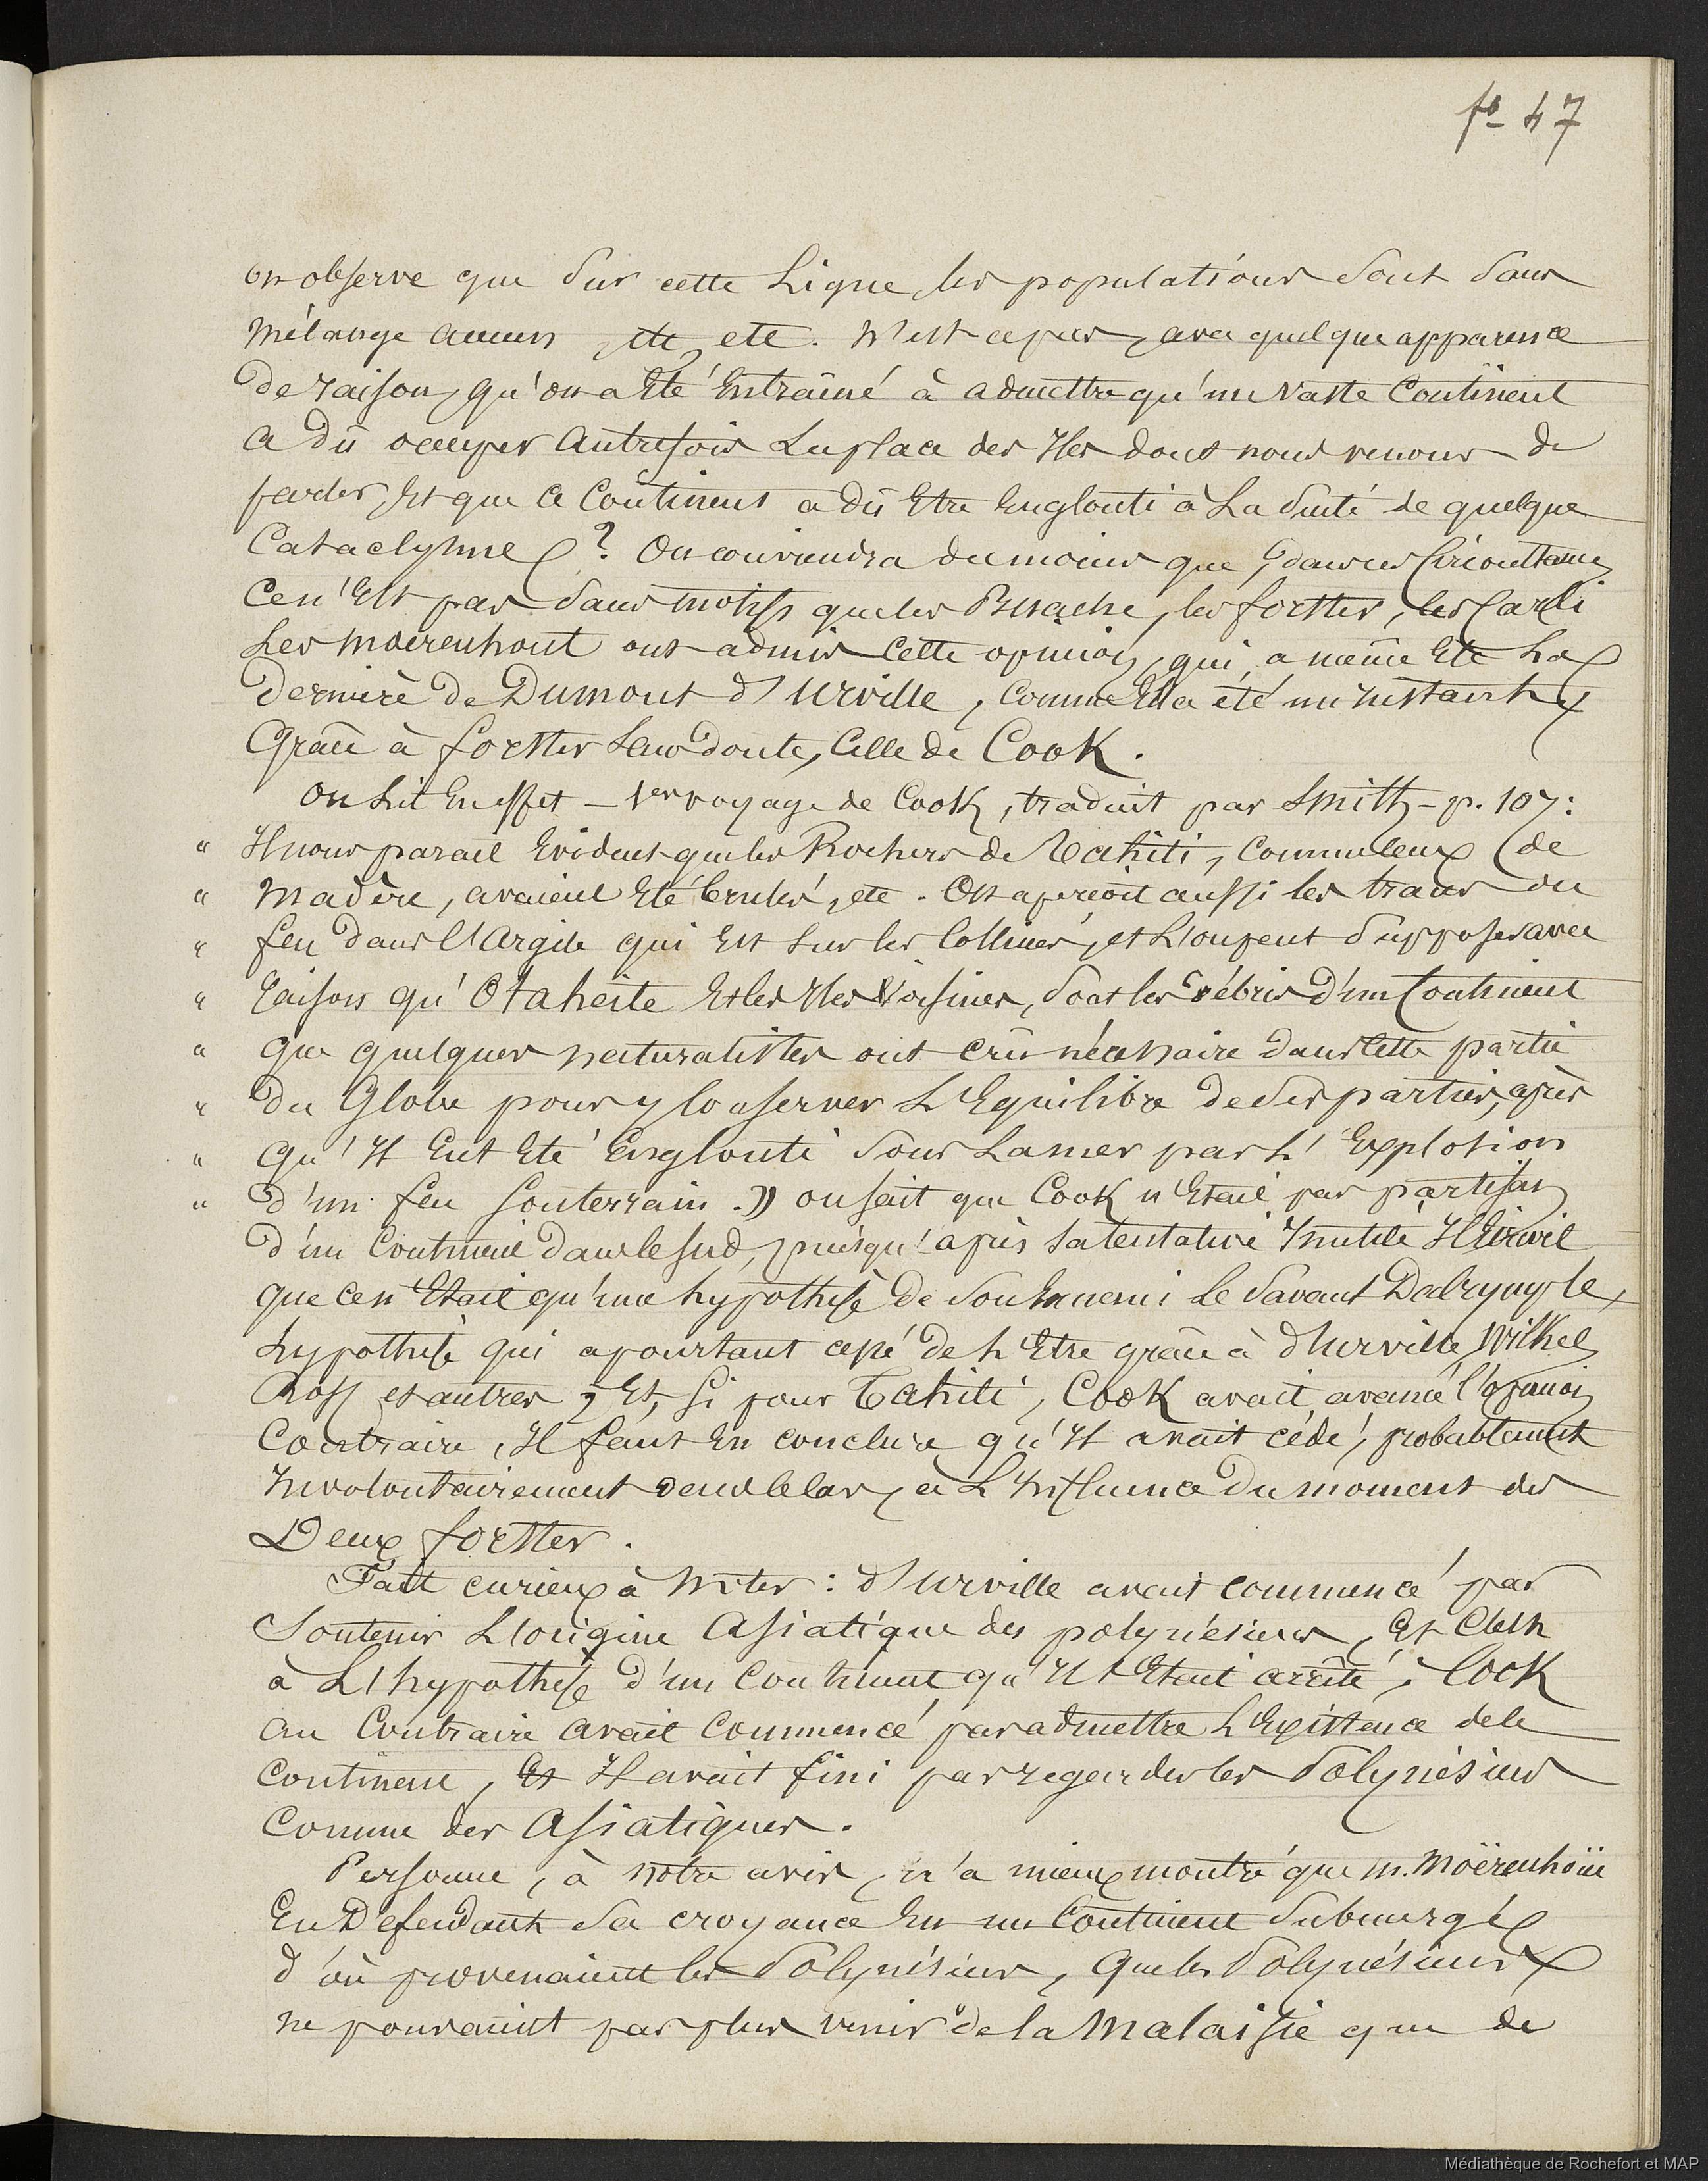 fo 47
on observe que sur cette Ligne, les populations sont sans
mélange aucun, etc, etc. N'est ce pas, avec quelque apparence
de raison, qu'on a Eté Entraîné à admettre qu'un Vaste Continent
a dû occuper autrefois La place des Iles dont nous venons de
parler, Et que ce Continent a dû Etre Englouti à La suite de quelque
Cataclysme? On conviendra du moins que, dans ces Circonstances
ce n'Est pas sans motifs que les Buache, les forster, les Carli
Les moerenhout ont admis cette opinion, qui a même Eté La
dernière de Dumont d'Urville, comme Elle a été un Instant,
Grâce à forster sans doute, Celle de Cook.
On Lit En effet - 1er voyage de Cook, traduit par Smith - p. 107:
" Il nous parait Evident que les Rochers de Tahiti, comme ceux de
" Madère, avaient Eté brulés, etc. On aperçoit aussi les traces du
" feu dans l'Argile qui Est sur les Collines, et L'on peut supposer avec
" raison qu'Otaheite Et les Iles Voisines, sont les débris d'un Continent
" que quelques naturalistes ont crû nécessaire dans cette partie
" du Globe pour y Conserver L'Equilibre de ses parties, après
" qu'Il Eut Eté Englouti sous La mer par L'Explosion
" d'un feu Souterrain. » on sait que Cook n'Etait pas partisan
d'un Continent dans le Sud, puisqu'après sa tentative Inutile Il Ecrivit
que ce n'Etait qu'une hypothèse de son Ennemi le Savant Dalrymple,
hypothèse qui a pourtant cessé de L'Etre grâce à d'urville, Wilkes
Ross et autres; Et, si pour Tahiti, Cook avait avancé l'opinion
Contraire, Il faut En conclure qu'Il avait cédé, probablement
Involontairement dans le cas, à L'Influence du moment des
Deux forster.
Fait curieux à noter: d'Urville avait commencé par
Soutenir L'origine Asiatique des polynésiens, Et C'est
à L'hypothèse d'un Continent qu'Il s'Etait arrêté; Cook
au Contraire avait Commencé par admettre L'Existence de ce
Continent, Et Il avait fini par regarder les Polynésiens
Comme des Asiatiques.
Personne, à notre avis, n'a mieux montré que m. Moërenhoüt
En Defendant sa croyance En un Continent submergé
d'où provenaient les Polynésiens, que les Polynésiens
ne pouvaient pas plus venir de la Malaisie que de
Médiathèque de Rochefort et MAP